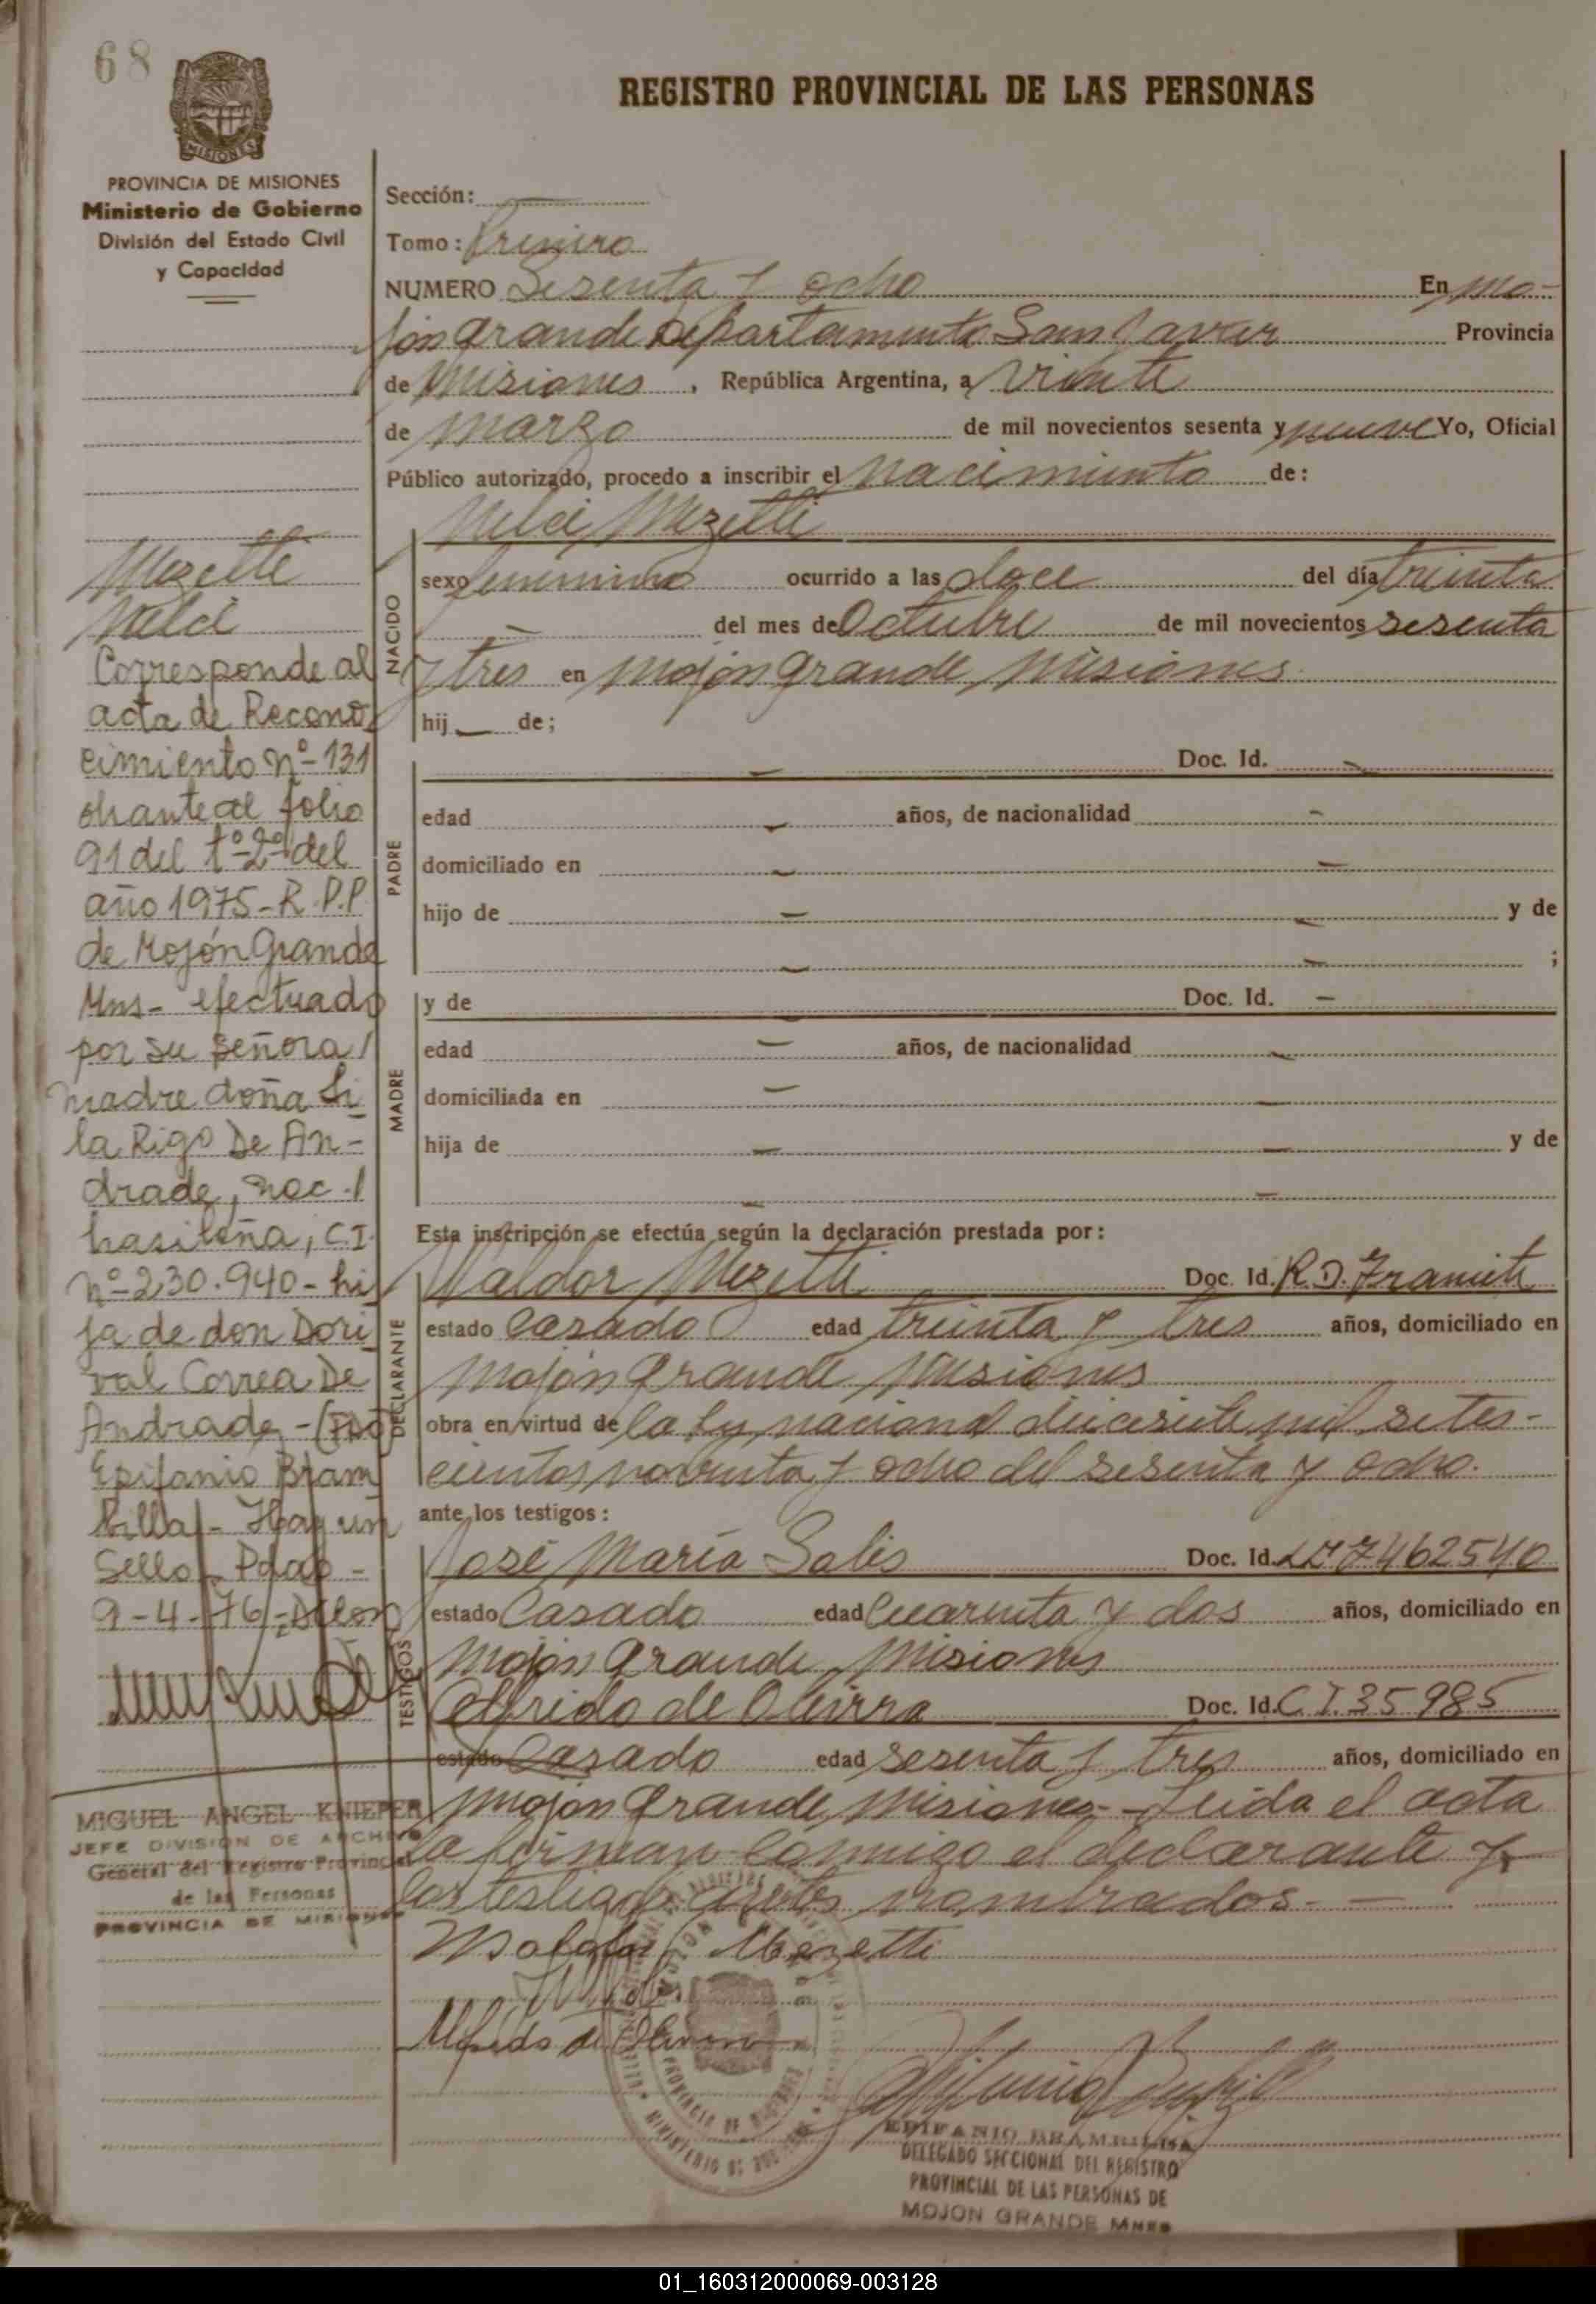 68
REGISTRO PROVINCIAL DE LAS PERSONAS
MISIONES
PROVINCIA DE MISIONES
Ministerio de Gobierno
División del Estado Civil
y Capacidad
Sección:
Tomo: Primero
NUMERO Sesenta y ocho En Mo-
jón Grande Departamento San Javier Provincia
de Misiones, República Argentina, a Veinte
de Marzo de mil novecientos sesenta y nueve Yo, Oficial
Público autorizado, procedo a inscribir el Nacimiento de:
Nelci Mezetti
NACIDO
sexo femenino ocurrido a las doce del día treinta
del mes de Octubre de mil novecientos sesenta
y tres en Mojón Grande, Misiones
hij — de;
PADRE
— Doc. Id. —
edad — años, de nacionalidad —
domiciliado en — —
hijo de — — y de
— — ;
MADRE
y de — Doc. Id. —
edad — años, de nacionalidad —
domiciliada en — —
hija de — — y de
— —
Esta inscripción se efectúa según la declaración prestada por:
DECLARANTE
Waldor Mezetti Doc. Id. R.D. Tramite
estado Casado edad treinta y tres años, domiciliado en
Mojón Grande Misiones
obra en virtud de la Ley nacional diecisiete mil setes-
cientos noventa y ocho del sesenta y ocho.
ante los testigos:
TESTIGOS
José María Solis Doc. Id. 7462540
estado Casado edad Cuarenta y dos años, domiciliado en
Mojón Grande, Misiones
Alfrido de Oliveira Doc. Id. C.I. 35985
estado Casado edad sesenta y tres años, domiciliado en
Mojón Grande, Misiones - Leida el acta
la firman conmigo el declarante y
los testigos antes nombrados. —
Mezetti
Alfredo de Olivera
EPIFANIO BRAMBILLA
DELEGADO SECCIONAL DEL REGISTRO
PROVINCIAL DE LAS PERSONAS DE
MOJON GRANDE MNES
PROVINCIA DE MISIONES
Mezetti
Nelci
Corresponde al
acta de Recono
cimiento nº-131
obrante al folio
91 del tº-2º del
año 1975-R.P.P.
de Mojón Grande
Mns- efectuado
por su señora/
madre doña Li
la Rigo De An-
drade, nac./
brasileña, C.I.
nº-230.940-hi
ja de don Dori
val Correa De
Andrade,-(FDO
Epifanio Bram
billa)- Hay un
Sello- Pdas-
9-4-76-
MIGUEL ANGEL KNIEPER
JEFE DIVISION DE ARCHIVO
General del Registro Provincial
de las Personas
PROVINCIA DE MISIONES
01_160312000069-003128